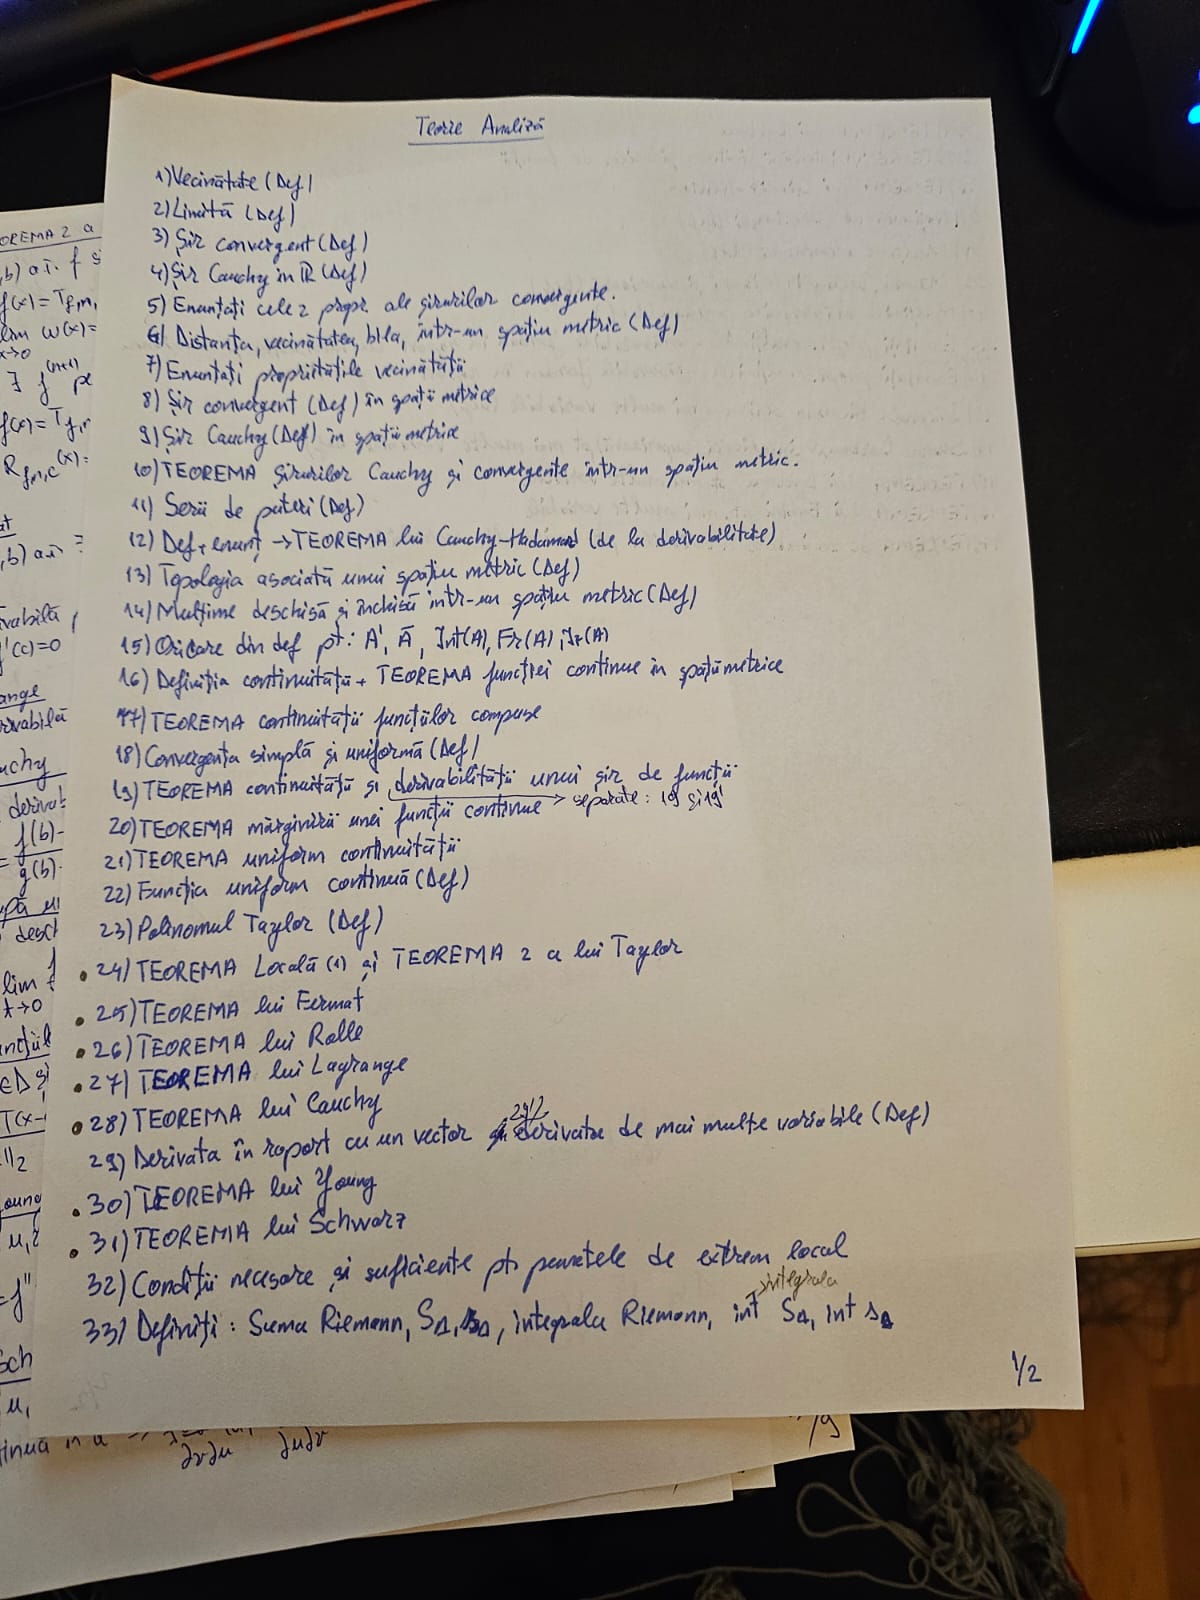 Teorie Analiză
1) Vecinătate (Def)
2) Limită (Def)
3) Șir convergent (Def)
4) Șir Cauchy în ℝ (Def)
5) Enunțați cele 2 propr. ale șirurilor convergente.
6) Distanța, vecinătatea, bila, într-un spațiu metric (Def)
7) Enunțați proprietățile vecinătății
8) Șir convergent (Def) în spații metrice
9) Șir Cauchy (Def) în spații metrice
10) TEOREMA șirurilor Cauchy și convergente într-un spațiu metric.
11) Serii de puteri (Def)
12) Def + enunț → TEOREMA lui Cauchy-Hadamard (de la derivabilitate)
13) Topologia asociată unui spațiu metric (Def)
14) Mulțime deschisă și închisă într-un spațiu metric (Def)
15) Oricare din def pt: A', Ā, Int(A), Fr(A), Iz(A)
16) Definiția continuității + TEOREMA funcției continue în spații metrice
17) TEOREMA continuității funcțiilor compuse
18) Convergența simplă și uniformă (Def)
19) TEOREMA continuității și derivabilității unui șir de funcții
→ separate: 19 și 19'
20) TEOREMA mărginirii unei funcții continue
21) TEOREMA uniform continuității
22) Funcția uniform continuă (Def)
23) Polinomul Taylor (Def)
• 24) TEOREMA Locală (1) și TEOREMA 2 a lui Taylor
• 25) TEOREMA lui Fermat
• 26) TEOREMA lui Rolle
• 27) TEOREMA lui Lagrange
• 28) TEOREMA lui Cauchy
29) Derivata în raport cu un vector derivate de mai multe variabile (Def)
• 30) TEOREMA lui Young
• 31) TEOREMA lui Schwarz
32) Condiții necesare și suficiente pt punctele de extrem local
→ integrala
33) Definiți: Suma Riemann, S_Δ, s_Δ, integrala Riemann, int S_Δ, int s_Δ
1/2
OREMA 2 a
f(x) = T
lim ω(x) =
x→0
∃ f⁽ⁿ⁺¹⁾
f(x) = T
R
f'(c)=0
f(b)-
g(b)
lim
t→0
∈D
T(x-
‖₂
f''
∂v∂u ∂u∂v
/9